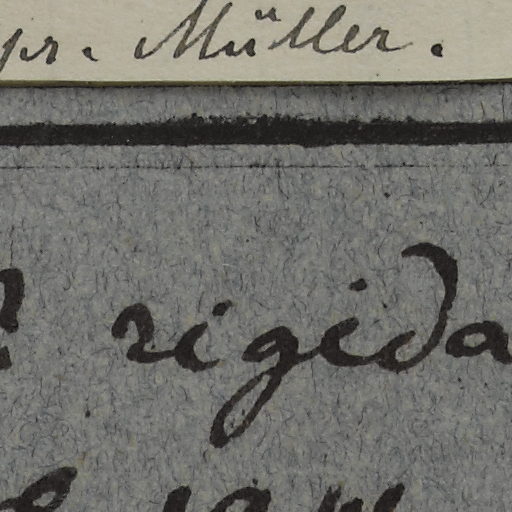 pr. Müller.
? rigida